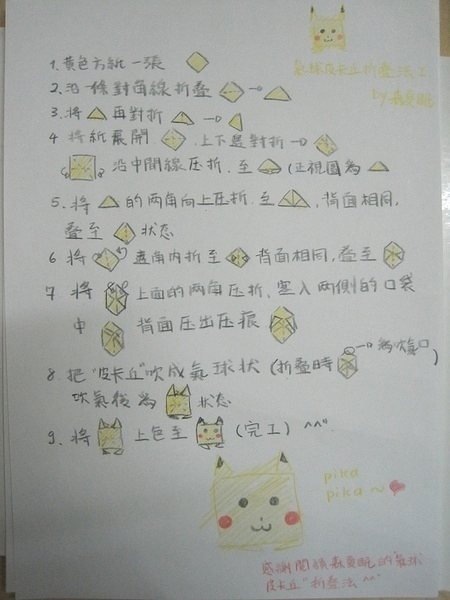 氣球皮卡丘折疊法I
by森夏眠
1. 黃色方紙一張
2. 沿一條對角線折疊
3. 將 再對折
4 將紙展開. 上下邊對折
沿中間線压折, 至 (正視圖為
5. 將 的两角向上压折. 至 , 背面相同,
叠至 狀态
6 將 邊角内折至 背面相同, 叠至
7 將 上面的两角压折, 塞入两側的口袋
中 背面压出压痕
8. 把"皮卡丘"吹成氣球狀 (折叠時 為吹氣口)
吹氣後為 狀态
9. 將 上色至 (完工) ^^".
pika
pika~
感謝閱讀森夏眠的"氣球
皮卡丘"折疊法^^